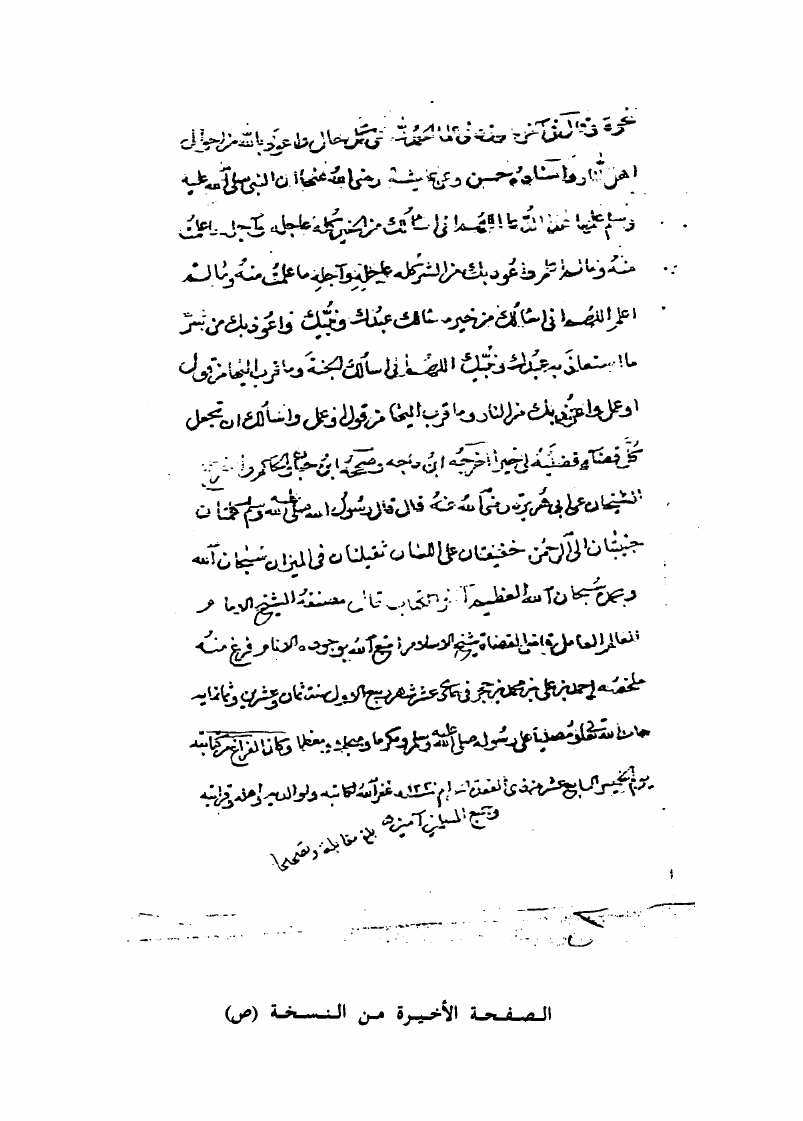 نحوه وقال في آخره وزدني علما الحمد لله على كل حال واعوذ بالله من احوال
اهل النار واسناده حسن وعن عايشة رضى الله عنها ان النبي صلى الله عليه
وسلم علمها هذا الدعا اللهم اني اسألك من الخير كله عاجله وآجله ما علمت
منه وما لم اعلم واعوذ بك من الشر كله عاجله وآجله ما علمت منه وما لم
اعلم اللهم اني اسألك من خير ما سالك عبدك ونبيك واعوذ بك من شر
ما استعاذ به عبدك ونبيك اللهم اني اسألك الجنة وما قرب اليها من قول
او عمل واعوذ بك من النار وما قرب اليها من قول وعمل واسألك ان تجعل
كل قضاء قضيته لي خيرا اخرجه ابن ماجه وصححه ابن حبان والحاكم واخرج
الشيخان عن ابي هريرة رضى الله عنه قال قال رسول الله صلى الله عليه وسلم كلمتان
حبيبتان الى الرحمن خفيفتان على اللسان ثقيلتان في الميزان سبحان الله
وبحمده سبحان الله العظيم آخر الكتاب قال مصنفه الشيخ الامام
العالم العامل قاضي القضاة شيخ الاسلام امتع الله بوجوده الانام فرغ منه
ملخصه احمد بن علي بن محمد بن حجر في حادى عشر شهر ربيع الاول سنة ثمان وعشرين وثمانمايه
حامدا لله تعالى ومصليا على رسوله صلى الله عليه وسلم ومكرما ومبجلا ومعظما وكان الفراغ من كتابته
يوم الخميس السابع عشر من ذى القعدة غفر الله لكاتبه ولوالديه واهله وقرابته
وجميع المسلمين آمين
بلغ مقابلة وتصحيحا
الصفحة الأخيرة من النسخة (ص)